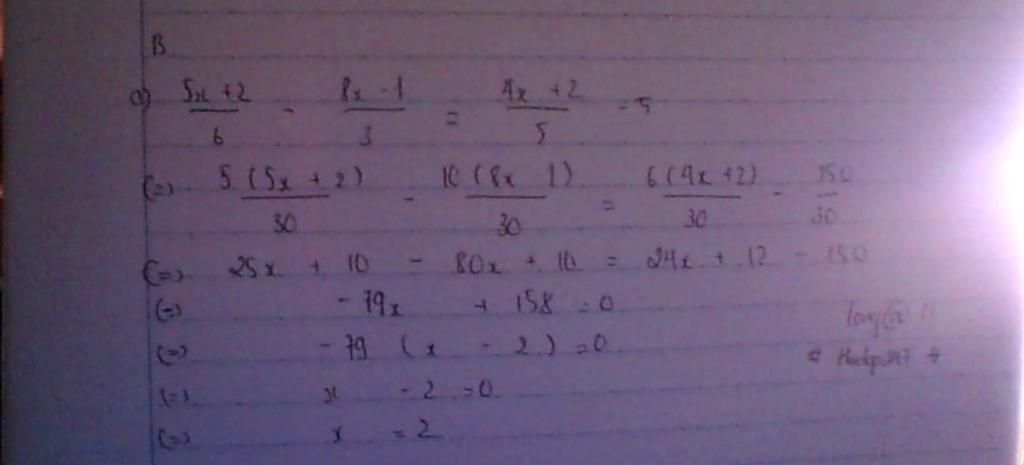 B.
a) 5x + 2 / 6 - 8x - 1 / 3 = 4x + 2 / 5 - 5
(=) 5 (5x + 2) / 30 - 10 (8x 1) / 30 = 6 (4x + 2) / 30 - 150 / 30
(=) 25x + 10 - 80x + 10 = 24x + 12 - 150
(=) - 79x + 158 = 0
(=) - 79 (x - 2) = 0
(=) x - 2 = 0
(=) x = 2